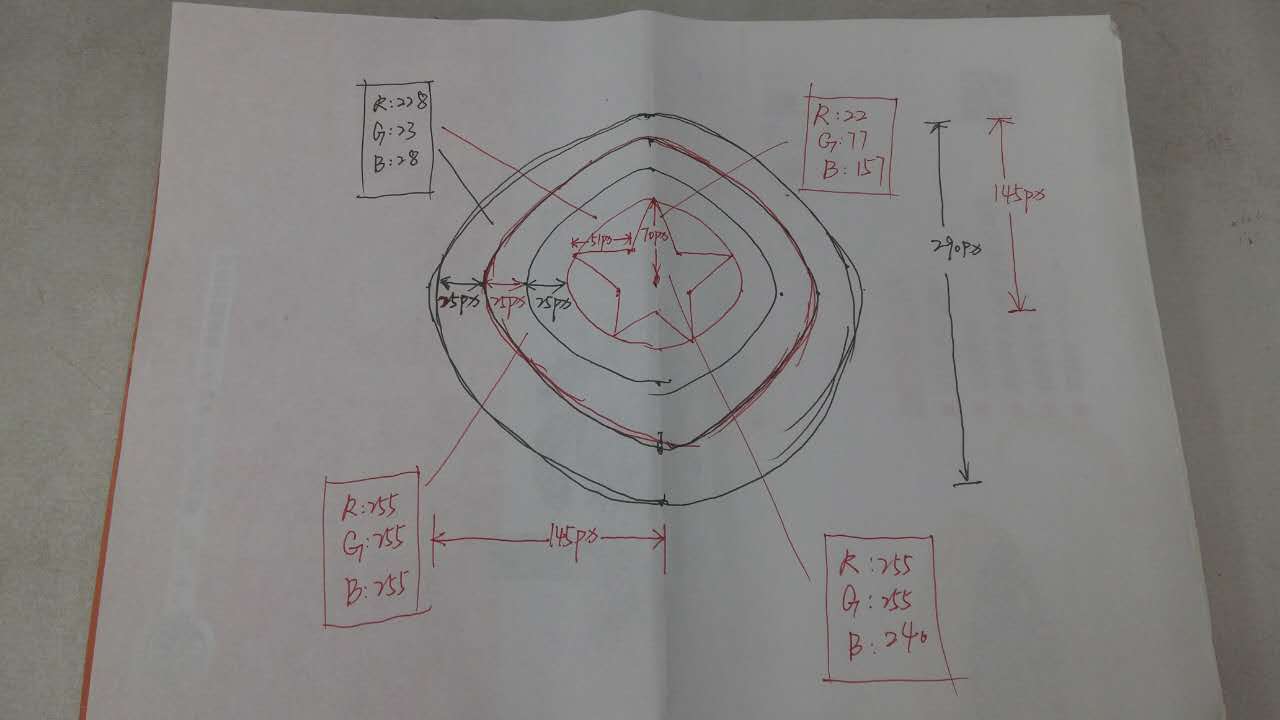 R:228
G:23
B:28
R:22
G:77
B:157
145px
290px
51px
70px
25px
25px
25px
R:255
G:255
B:255
145px
R:255
G:255
B:240